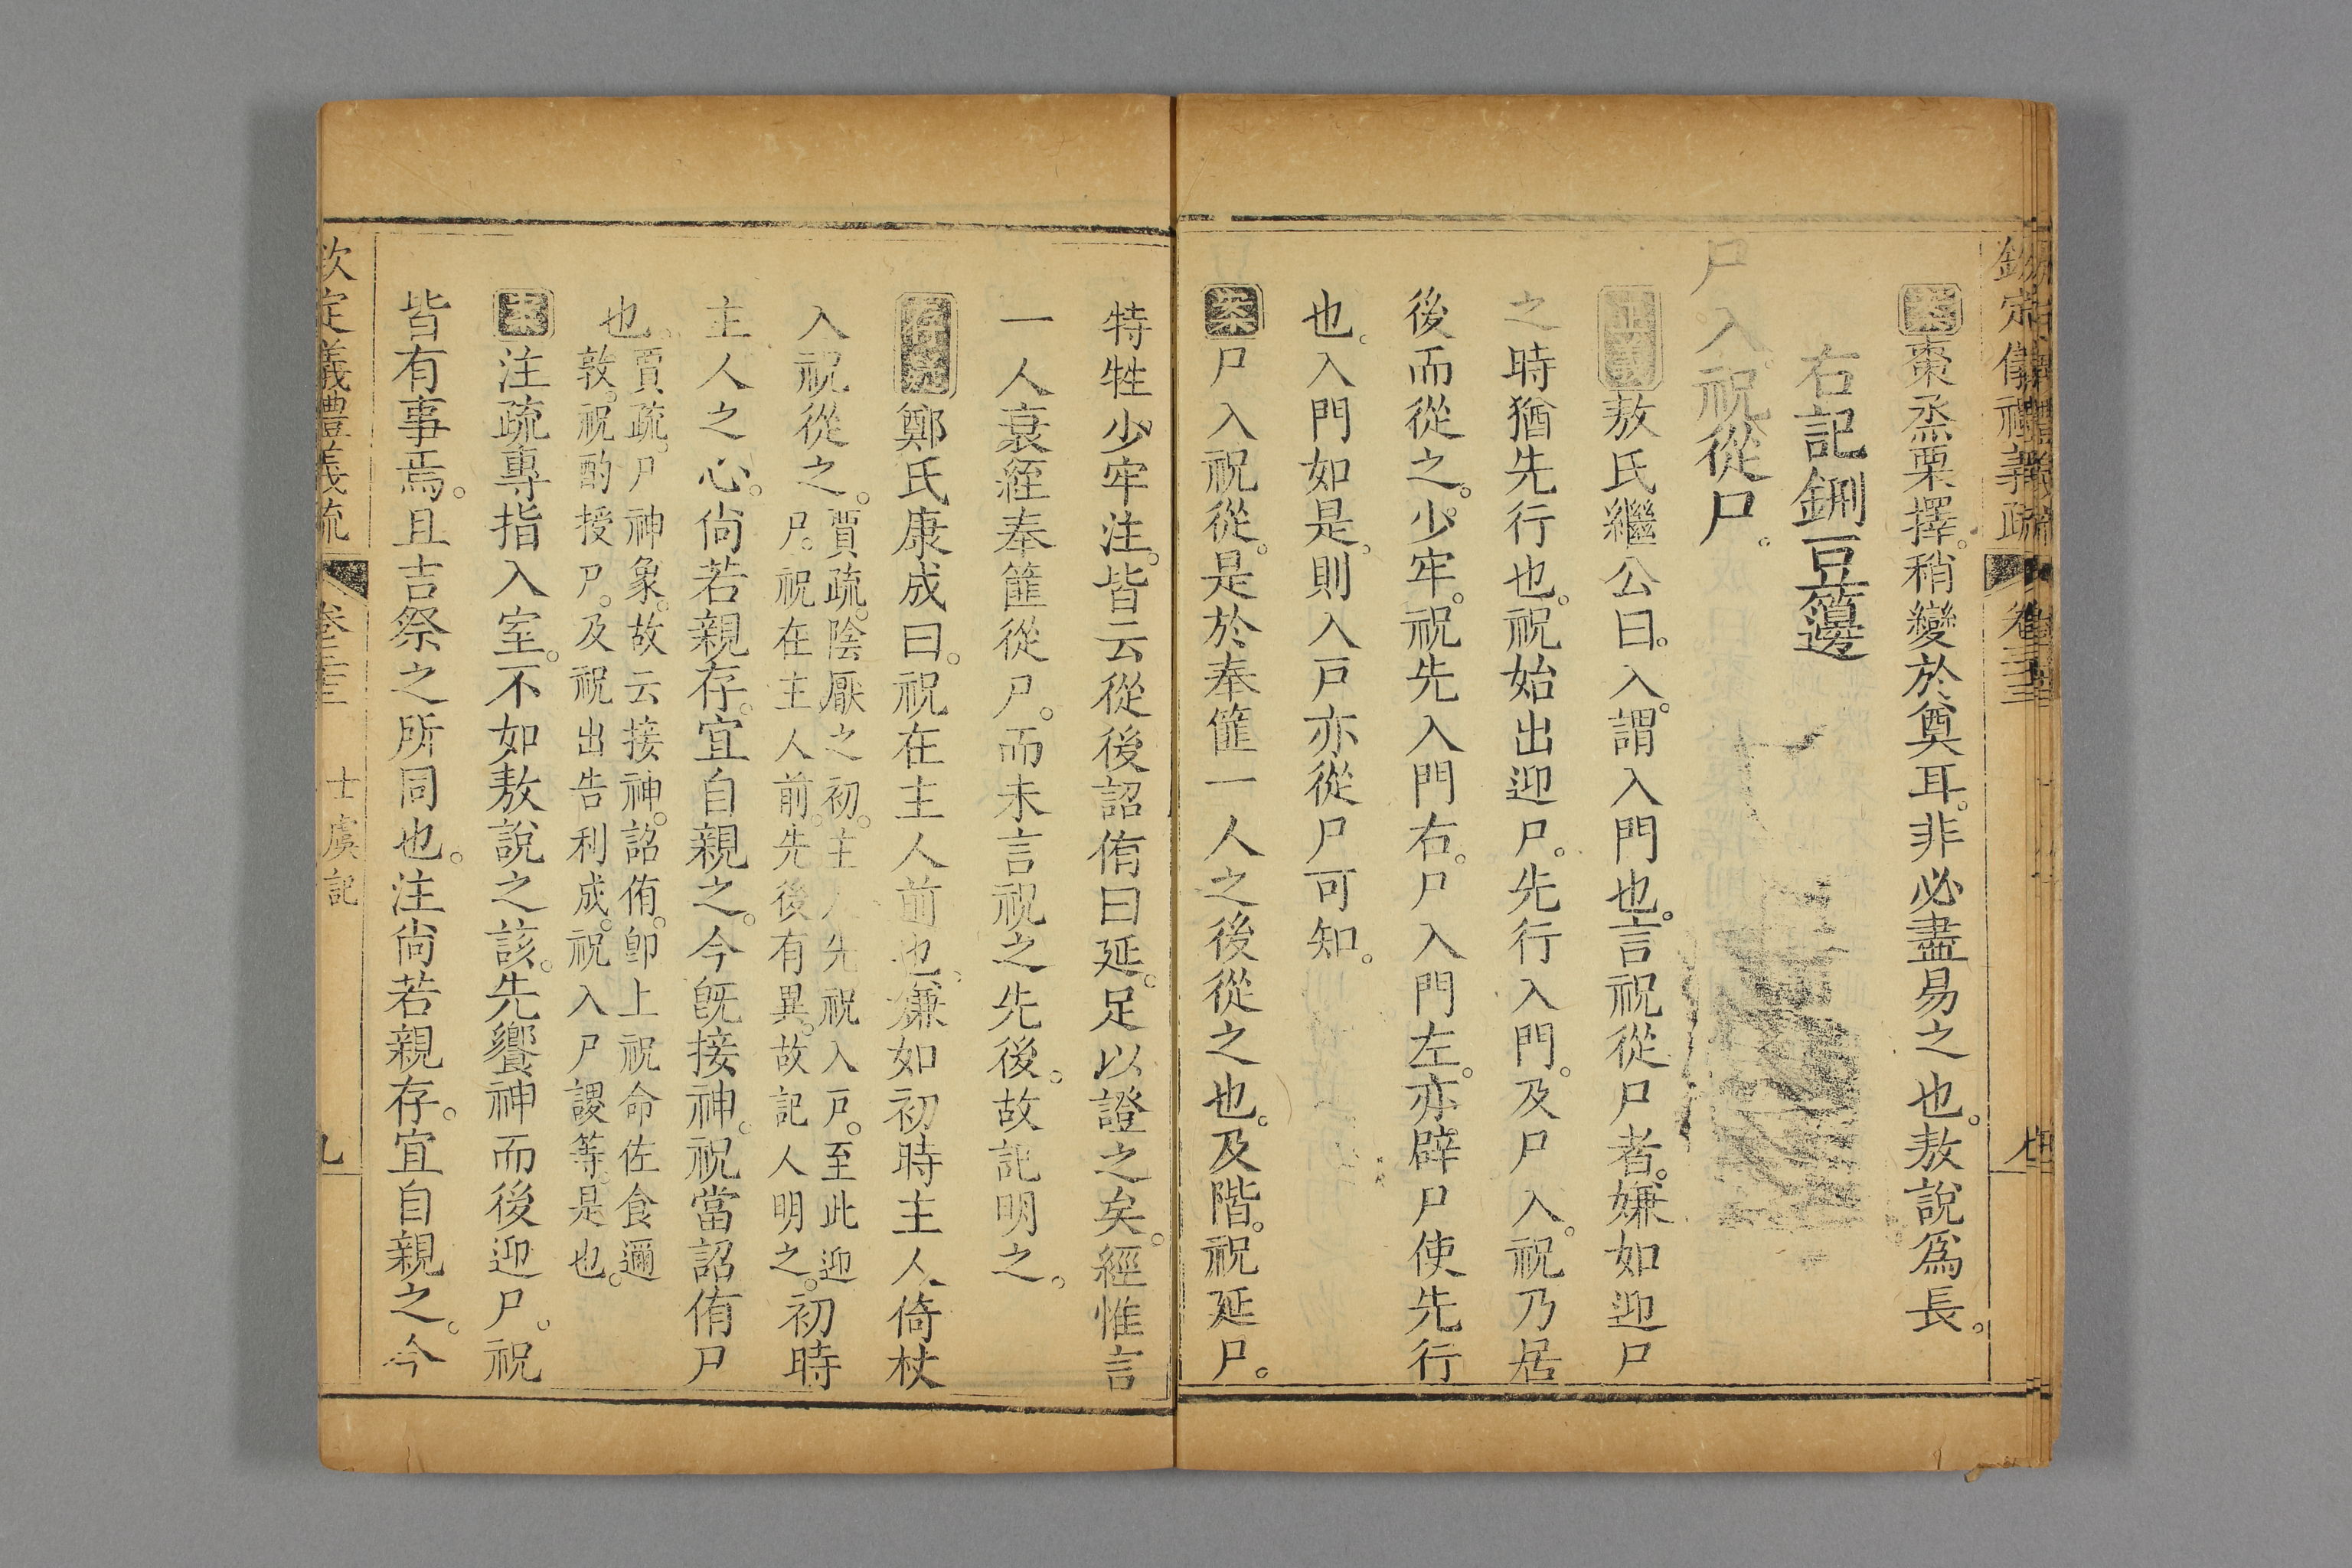 案棗烝栗擇。稍變於奠耳。非必盡易之也。敖說爲長。
右記鉶豆籩
尸入。祝從尸。
正義敖氏繼公曰。入。謂入門也。言祝從尸者。嫌如迎尸
之時猶先行也。祝始出迎尸。先行入門。及尸入。祝乃居
後而從之。少牢。祝先入門右。尸入門左。亦辟尸使先行
也。入門如是。則入戸亦從尸可知。
案尸入祝從。是於奉篚一人之後從之也。及階。祝延尸。
特牲少牢注。皆云從後詔侑曰延。足以證之矣。經惟言
一人衰絰奉篚從尸。而未言祝之先後。故記明之。
存疑鄭氏康成曰。祝在主人前也。嫌如初時主人倚杖
入祝從之。賈疏。陰厭之初。主人先祝入戸。至此迎尸。祝在主人前。先後有異。故記人明之。初時
主人之心。尙若親存。宜自親之。今旣接神。祝當詔侑尸
也。賈疏。尸神象。故云接神。詔侑。卽上祝命佐食邇敦。祝酌授尸。及祝出告利成。祝入尸謖等。是也。
案注疏專指入室。不如敖說之該。先饗神而後迎尸。祝
皆有事焉。且吉祭之所同也。注尙若親存。宜自親之。今
欽定義禮義疏 卷三十三 士虞記 九